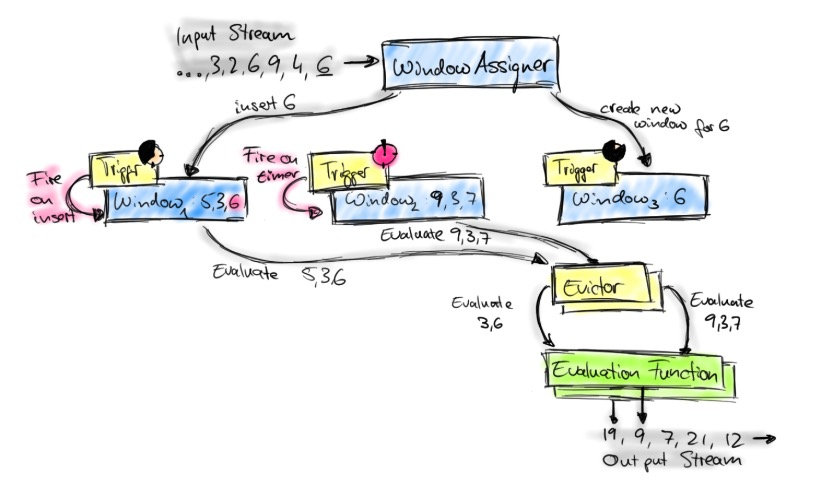 Input Stream
...,3,2,6,9,4,6
Window Assigner
insert 6
create new
window for 6
Trigger
Fire on
timer
Trigger
Trigger
Fire
on
insert
Window1: 5,3,6
Window2: 9,3,7
Window3: 6
Evaluate 9,3,7
Evaluate 5,3,6
Evictor
Evaluate
3,6
Evaluate
9,3,7
Evaluation Function
19, 9, 7, 21, 12
Output Stream